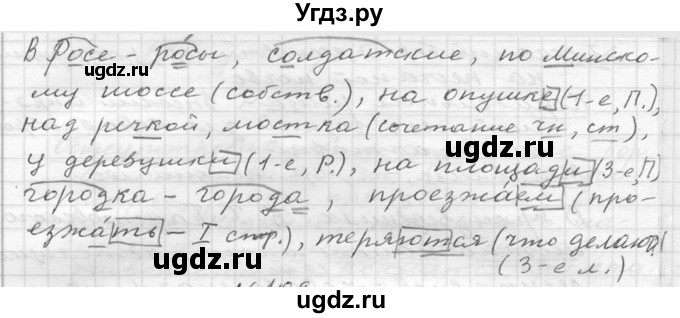 Угдз.ру
В Росе - росы, солдатские, по Минско-
му шоссе (собств.), на опушке (1-е, П.),
над речкой, мостка (сочетание чн, ст),
у деревушки (1-е, Р.), на площади (3-е, П)
городка - города, проезжаем (про-
езжать - I спр.), теряются (что делают
(3-е л.)
©ugdz.ru
©ugdz.ru
ugdz.ru
ugdz.ru